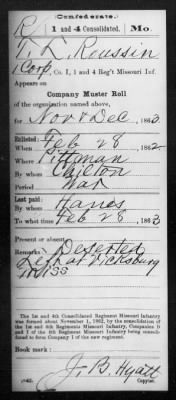 Confederate.
R 1 and 4 Consolidated. Mo.
T. L. Roussin
Corp, Co. I, 1 and 4 Reg't Missouri Inf.
Appears on
Company Muster Roll
of the organization named above,
for Nov & Dec, 1863
Enlisted:
When Feb 28, 1862
Where Pittman
By whom Chilton
Period War
Last paid:
By whom Hanos
To what time Feb 28, 1863
Present or absent
Remarks: Deserted
left at Vicksburg
Miss
The 1st and 4th Consolidated Regiment Missouri Infantry
was formed about November 1, 1862, by the consolidation of
the 1st and 4th Regiments Missouri Infantry, Companies
and I of the 4th Regiment Missouri Infantry being consoli-
dated to form Company I of the new regiment.
Book mark:
J. B. Hyatt
(642) Copyist.